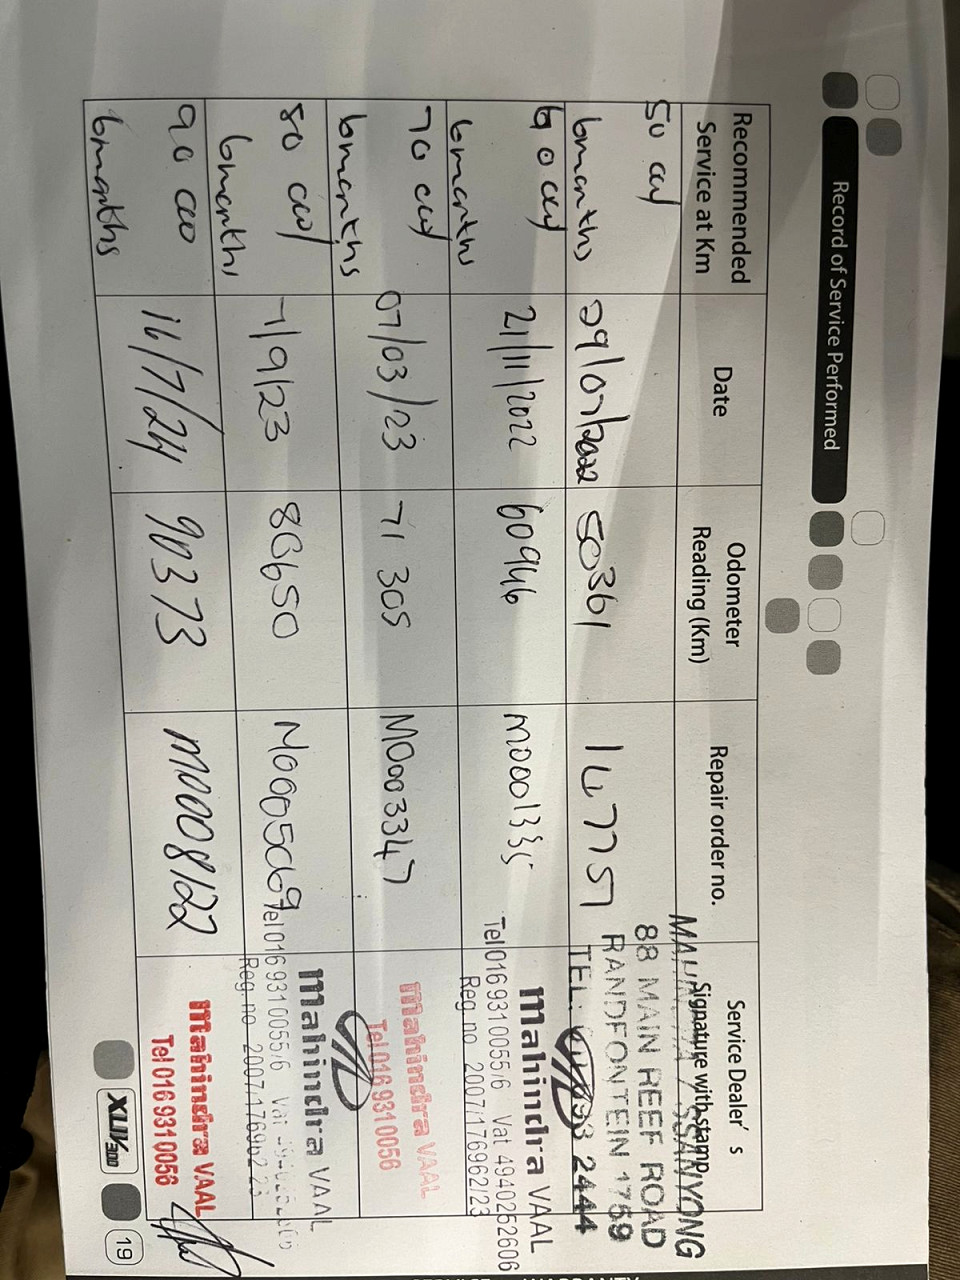 Record of Service Performed
Recommended Service at Km
Date
Odometer Reading (Km)
Repair order no.
Service Dealer's Signature with stamp
50 000
6months
29/07/2022
50361
147751
SSANYONG
88 MAIN REEF ROAD
RANDFONTEIN 1759
TEL: 2444
60 000
6months
21/11/2022
60946
M0001335
mahindra VAAL
Tel 016 931 0055/6 Vat 4940252606
Reg no 2007/176962/23
70 000
6months
07/03/23
71 305
M0003347
mahindra VAAL
Tel 016 931 0056
80 000
6months
7/9/23
80650
M0005069
mahindra VAAL
Tel 016 931 0055/6 Vat
Reg. no 2007/176962/23
90 000
6months
16/7/24
90373
M0008122
mahindra VAAL
Tel 016 931 0056
XUV300
19